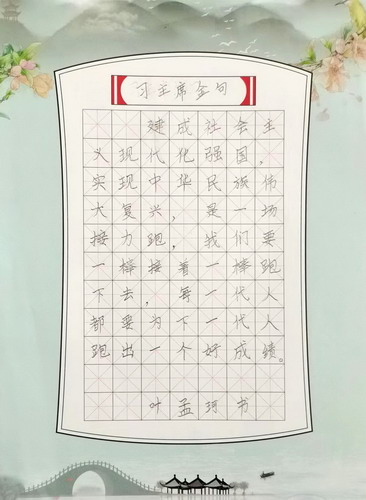 习主席金句
建成社会主
义现代化强国，
实现中华民族伟
大复兴，是一场
接力跑，我们要
一棒接着一棒跑
下去，每一代人
都要为下一代人
跑出一个好成绩。
叶孟珂书